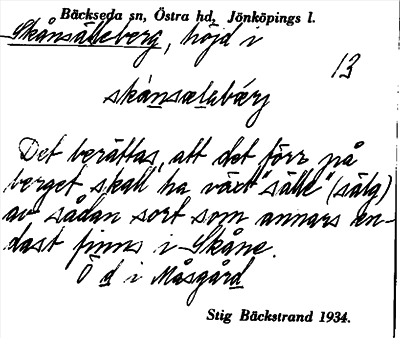 Bäckseda sn, Östra hd, Jönköpings l.
Skånsälleberg, höjd i
13
skånsælabærj
Det berättas, att det förr på
berget skall ha växt "sälle" (sälg)
av sådan sort som annars en-
dast finns i Skåne.
Ö d i Måsgård
Stig Bäckstrand 1934.